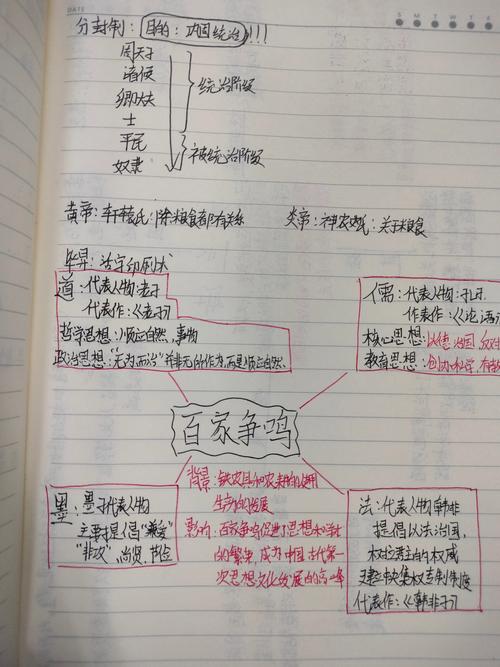 DATE
S M T W T F S
分封制: 目的: 巩固统治!!!
周天子
诸侯
卿大夫
士
平民
奴隶
统治阶级
被统治阶级
黄帝:轩辕氏:除粮食都有关系
炎帝:神农氏:关于粮食
毕昇:活字印刷术
道:代表人物:老子
代表作:《老子》
哲学思想:顺应自然、事物
政治思想:"无为而治"并非无的作为,而是顺应自然.
儒:代表人物:孔子
作表作:《论语》
核心思想:以德治国,反对
教育思想:创办私学,有教
百家争鸣
墨:墨子代表人物
主要提倡"兼爱"
"非攻",尚贤,节俭
背景:铁农具和农耕的使用
生产的发展
影响:百家争鸣促进了思想和学术
的繁荣,成为中国古代第一
次思想文化发展的高峰
法:代表人物韩非
提倡以法治国,
树立君主的权威
建立中央集权专制制度
代表作:《韩非子》